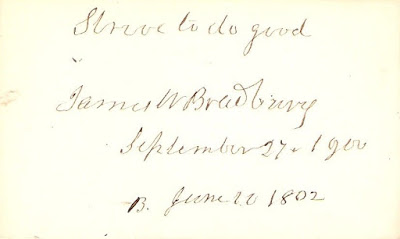 Strive to do good
James W Bradbury
September 27. 1900
B. June 10 1802